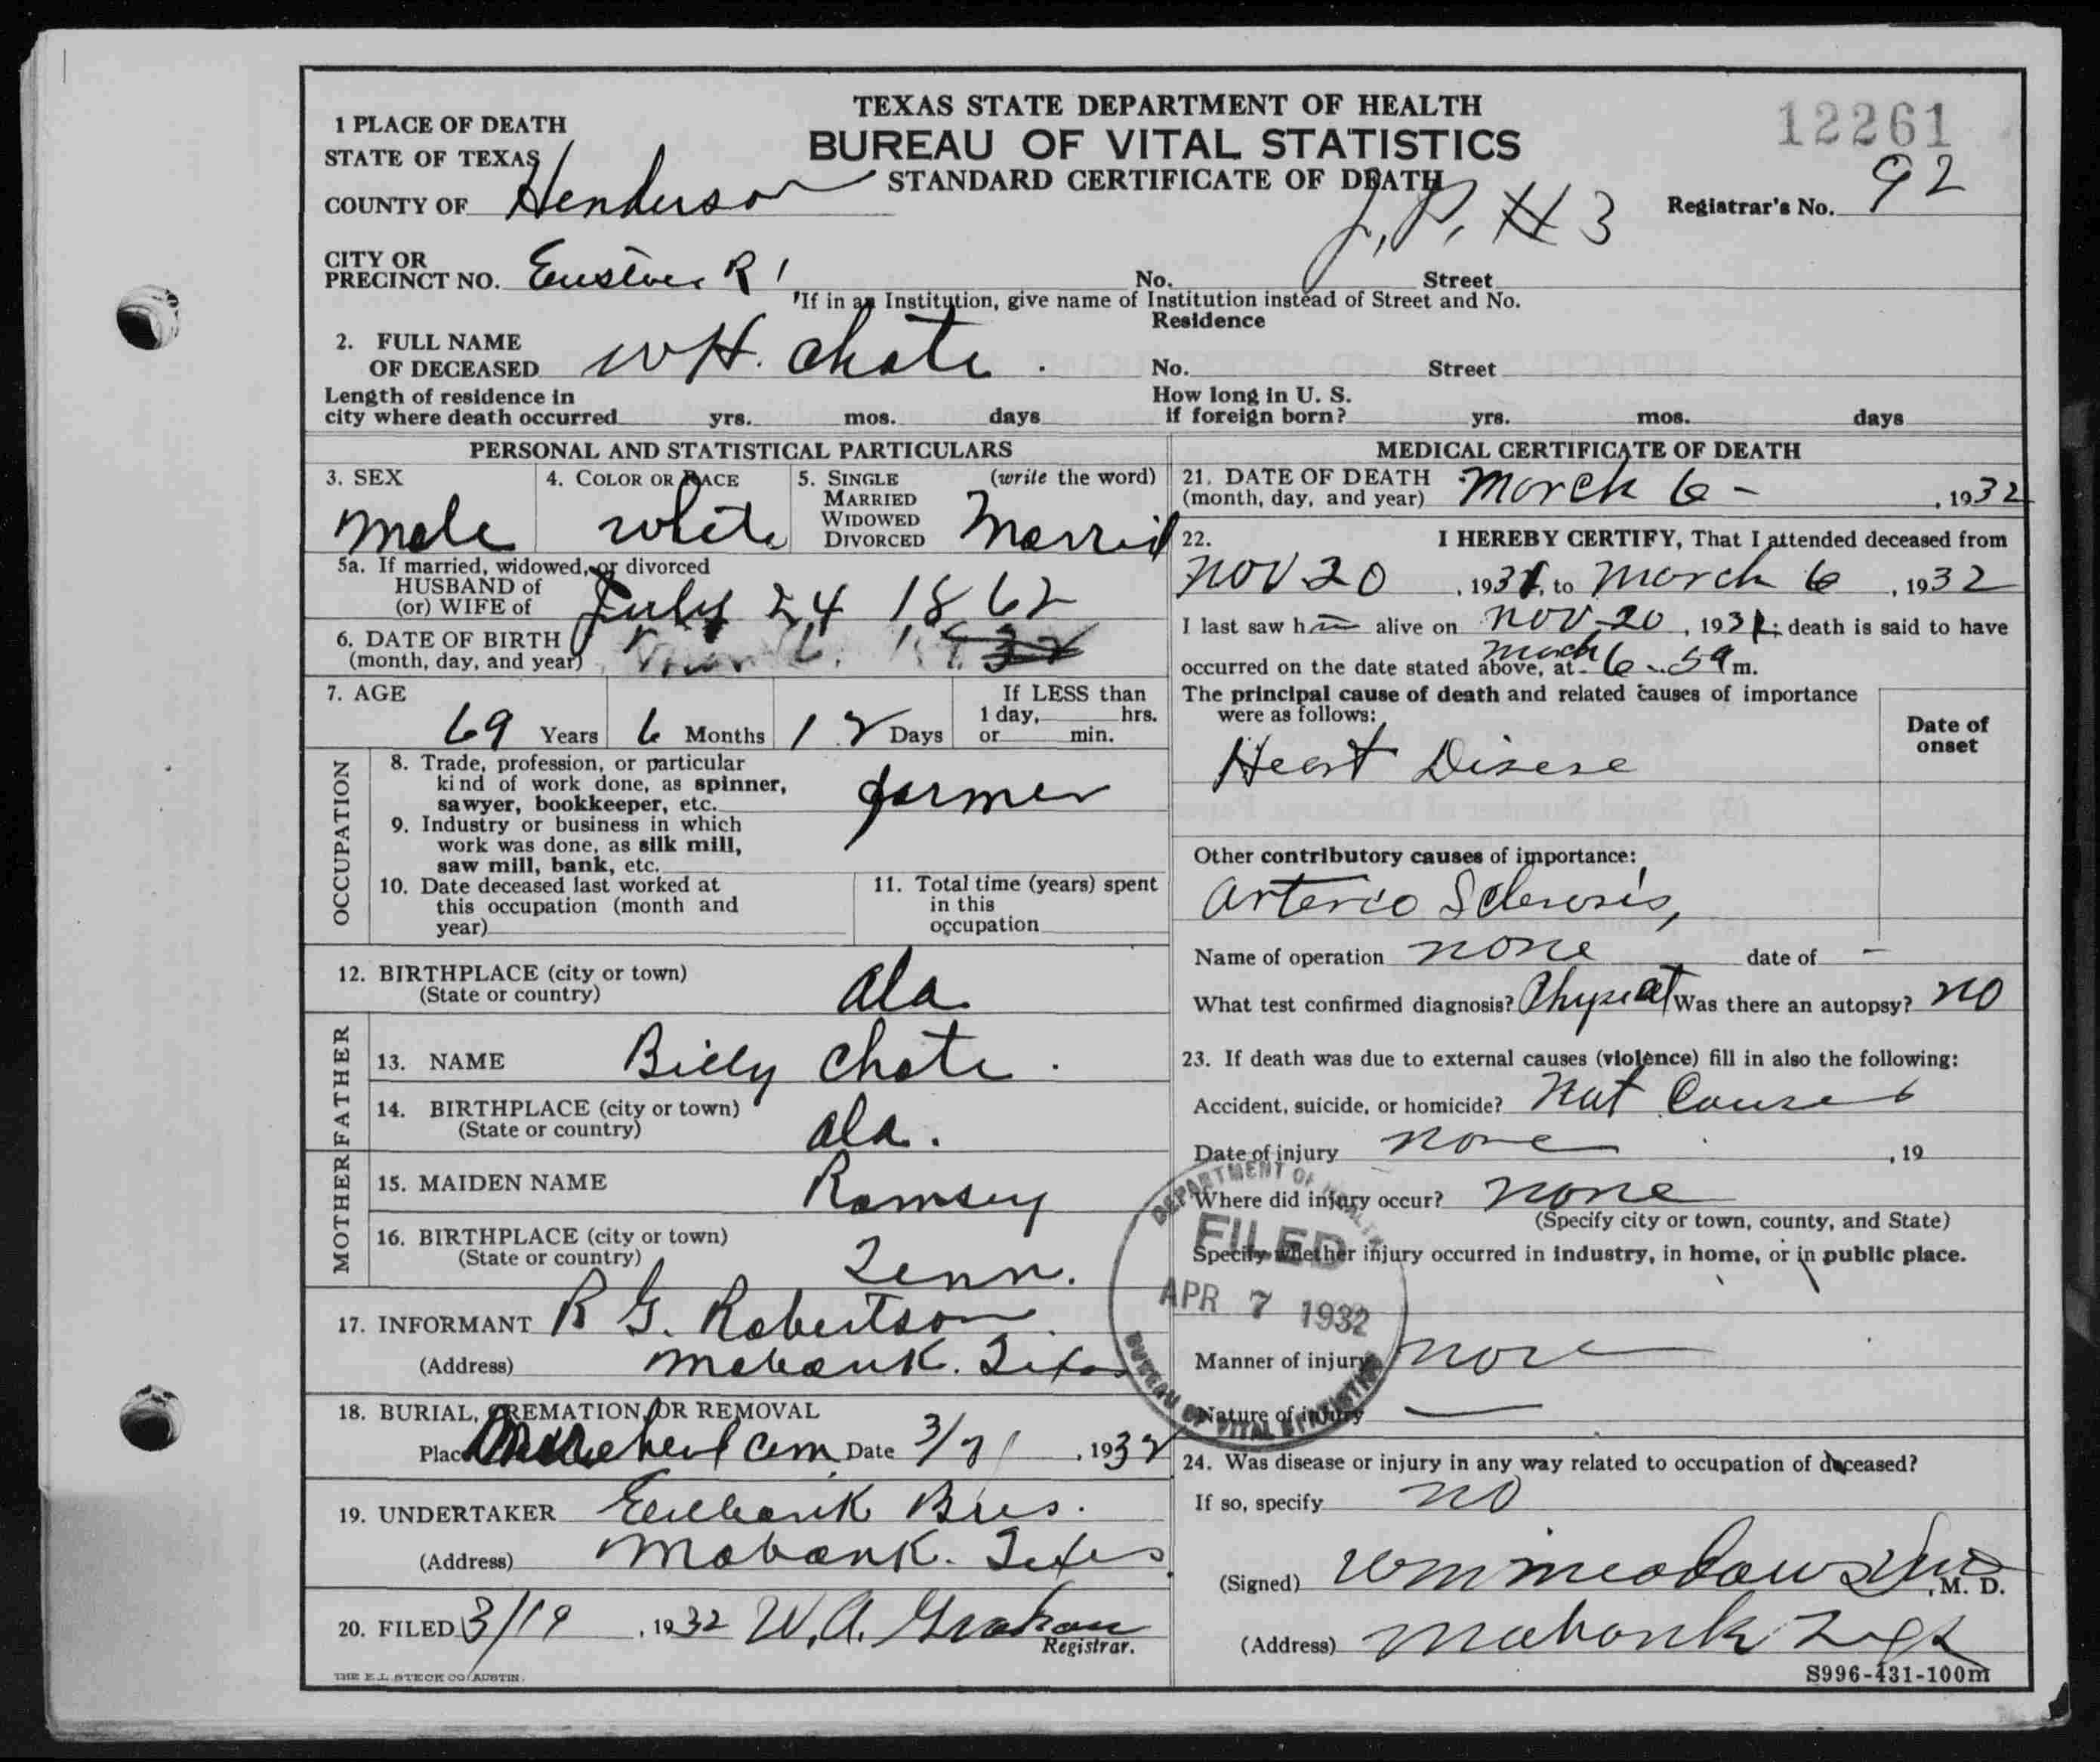 TEXAS STATE DEPARTMENT OF HEALTH
BUREAU OF VITAL STATISTICS
STANDARD CERTIFICATE OF DEATH
12261
1 PLACE OF DEATH
STATE OF TEXAS
COUNTY OF Henderson
J.P. #3
Registrar's No. 92
CITY OR
PRECINCT NO. R 1 No. Street
*If in an Institution, give name of Institution instead of Street and No.
Residence
2. FULL NAME
OF DECEASED W H. Chote No. Street
Length of residence in
city where death occurred yrs. mos. days
How long in U. S.
if foreign born? yrs. mos. days
PERSONAL AND STATISTICAL PARTICULARS
3. SEX Male
4. COLOR OR RACE White
5. SINGLE MARRIED WIDOWED DIVORCED (write the word) Married
5a. If married, widowed, or divorced
HUSBAND of
(or) WIFE of
July 24 1862
6. DATE OF BIRTH
(month, day, and year)
7. AGE 69 Years 6 Months 12 Days
If LESS than
1 day, hrs.
or min.
OCCUPATION
8. Trade, profession, or particular
kind of work done, as spinner,
sawyer, bookkeeper, etc. farmer
9. Industry or business in which
work was done, as silk mill,
saw mill, bank, etc.
10. Date deceased last worked at
this occupation (month and
year)
11. Total time (years) spent
in this
occupation
12. BIRTHPLACE (city or town)
(State or country) Ala
FATHER
13. NAME Billy Chote.
14. BIRTHPLACE (city or town)
(State or country) Ala.
MOTHER
15. MAIDEN NAME Ramsey
16. BIRTHPLACE (city or town)
(State or country) Tenn.
17. INFORMANT R G. Robertson
(Address) Mabank. Texas
18. BURIAL, CREMATION, OR REMOVAL
Place Cem Date 3/7/, 1932
19. UNDERTAKER Eubank Bros.
(Address) Mabank. Texas
20. FILED 3/19, 1932 W. A. Graham
Registrar.
THE E.L. STECK CO. AUSTIN.
MEDICAL CERTIFICATE OF DEATH
21. DATE OF DEATH
(month, day, and year) March 6 -, 1932
22. I HEREBY CERTIFY, That I attended deceased from
Nov 20, 1931, to March 6, 1932
I last saw him alive on Nov-20, 1931; death is said to have
March
occurred on the date stated above, at 6 - 5 a m.
The principal cause of death and related causes of importance
were as follows:
Date of
onset
Heart Disese
Other contributory causes of importance:
Arterio Sclerosis,
Name of operation none date of -
What test confirmed diagnosis? Physical Was there an autopsy? no
23. If death was due to external causes (violence) fill in also the following:
Accident, suicide, or homicide? Nat Causes
Date of injury none, 19
Where did injury occur? none
(Specify city or town, county, and State)
Specify whether injury occurred in industry, in home, or in public place.
Manner of injury none
Nature of injury
DEPARTMENT OF HEALTH
FILED
APR 7 1932
BUREAU OF VITAL STATISTICS
24. Was disease or injury in any way related to occupation of deceased?
If so, specify no
(Signed) Wm Meadows M.D., M. D.
(Address) Mabank Tex
S996-431-100m